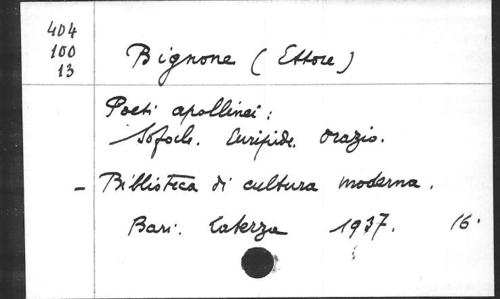 404
100
13
Bignone (Ettore)
Poeti apollinei:
Sofocle. Euripide. Orazio.
- Biblioteca di cultura moderna.
Bari. Laterza 1937. 16°